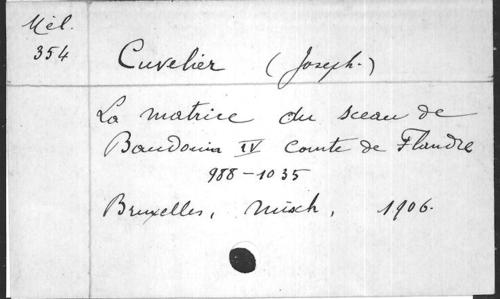 Mél.
354
Cuvelier (Joseph.)
La matrice du sceau de
Baudouin IV Comte de Flandre
988-1035
Bruxelles, Misch, 1906.